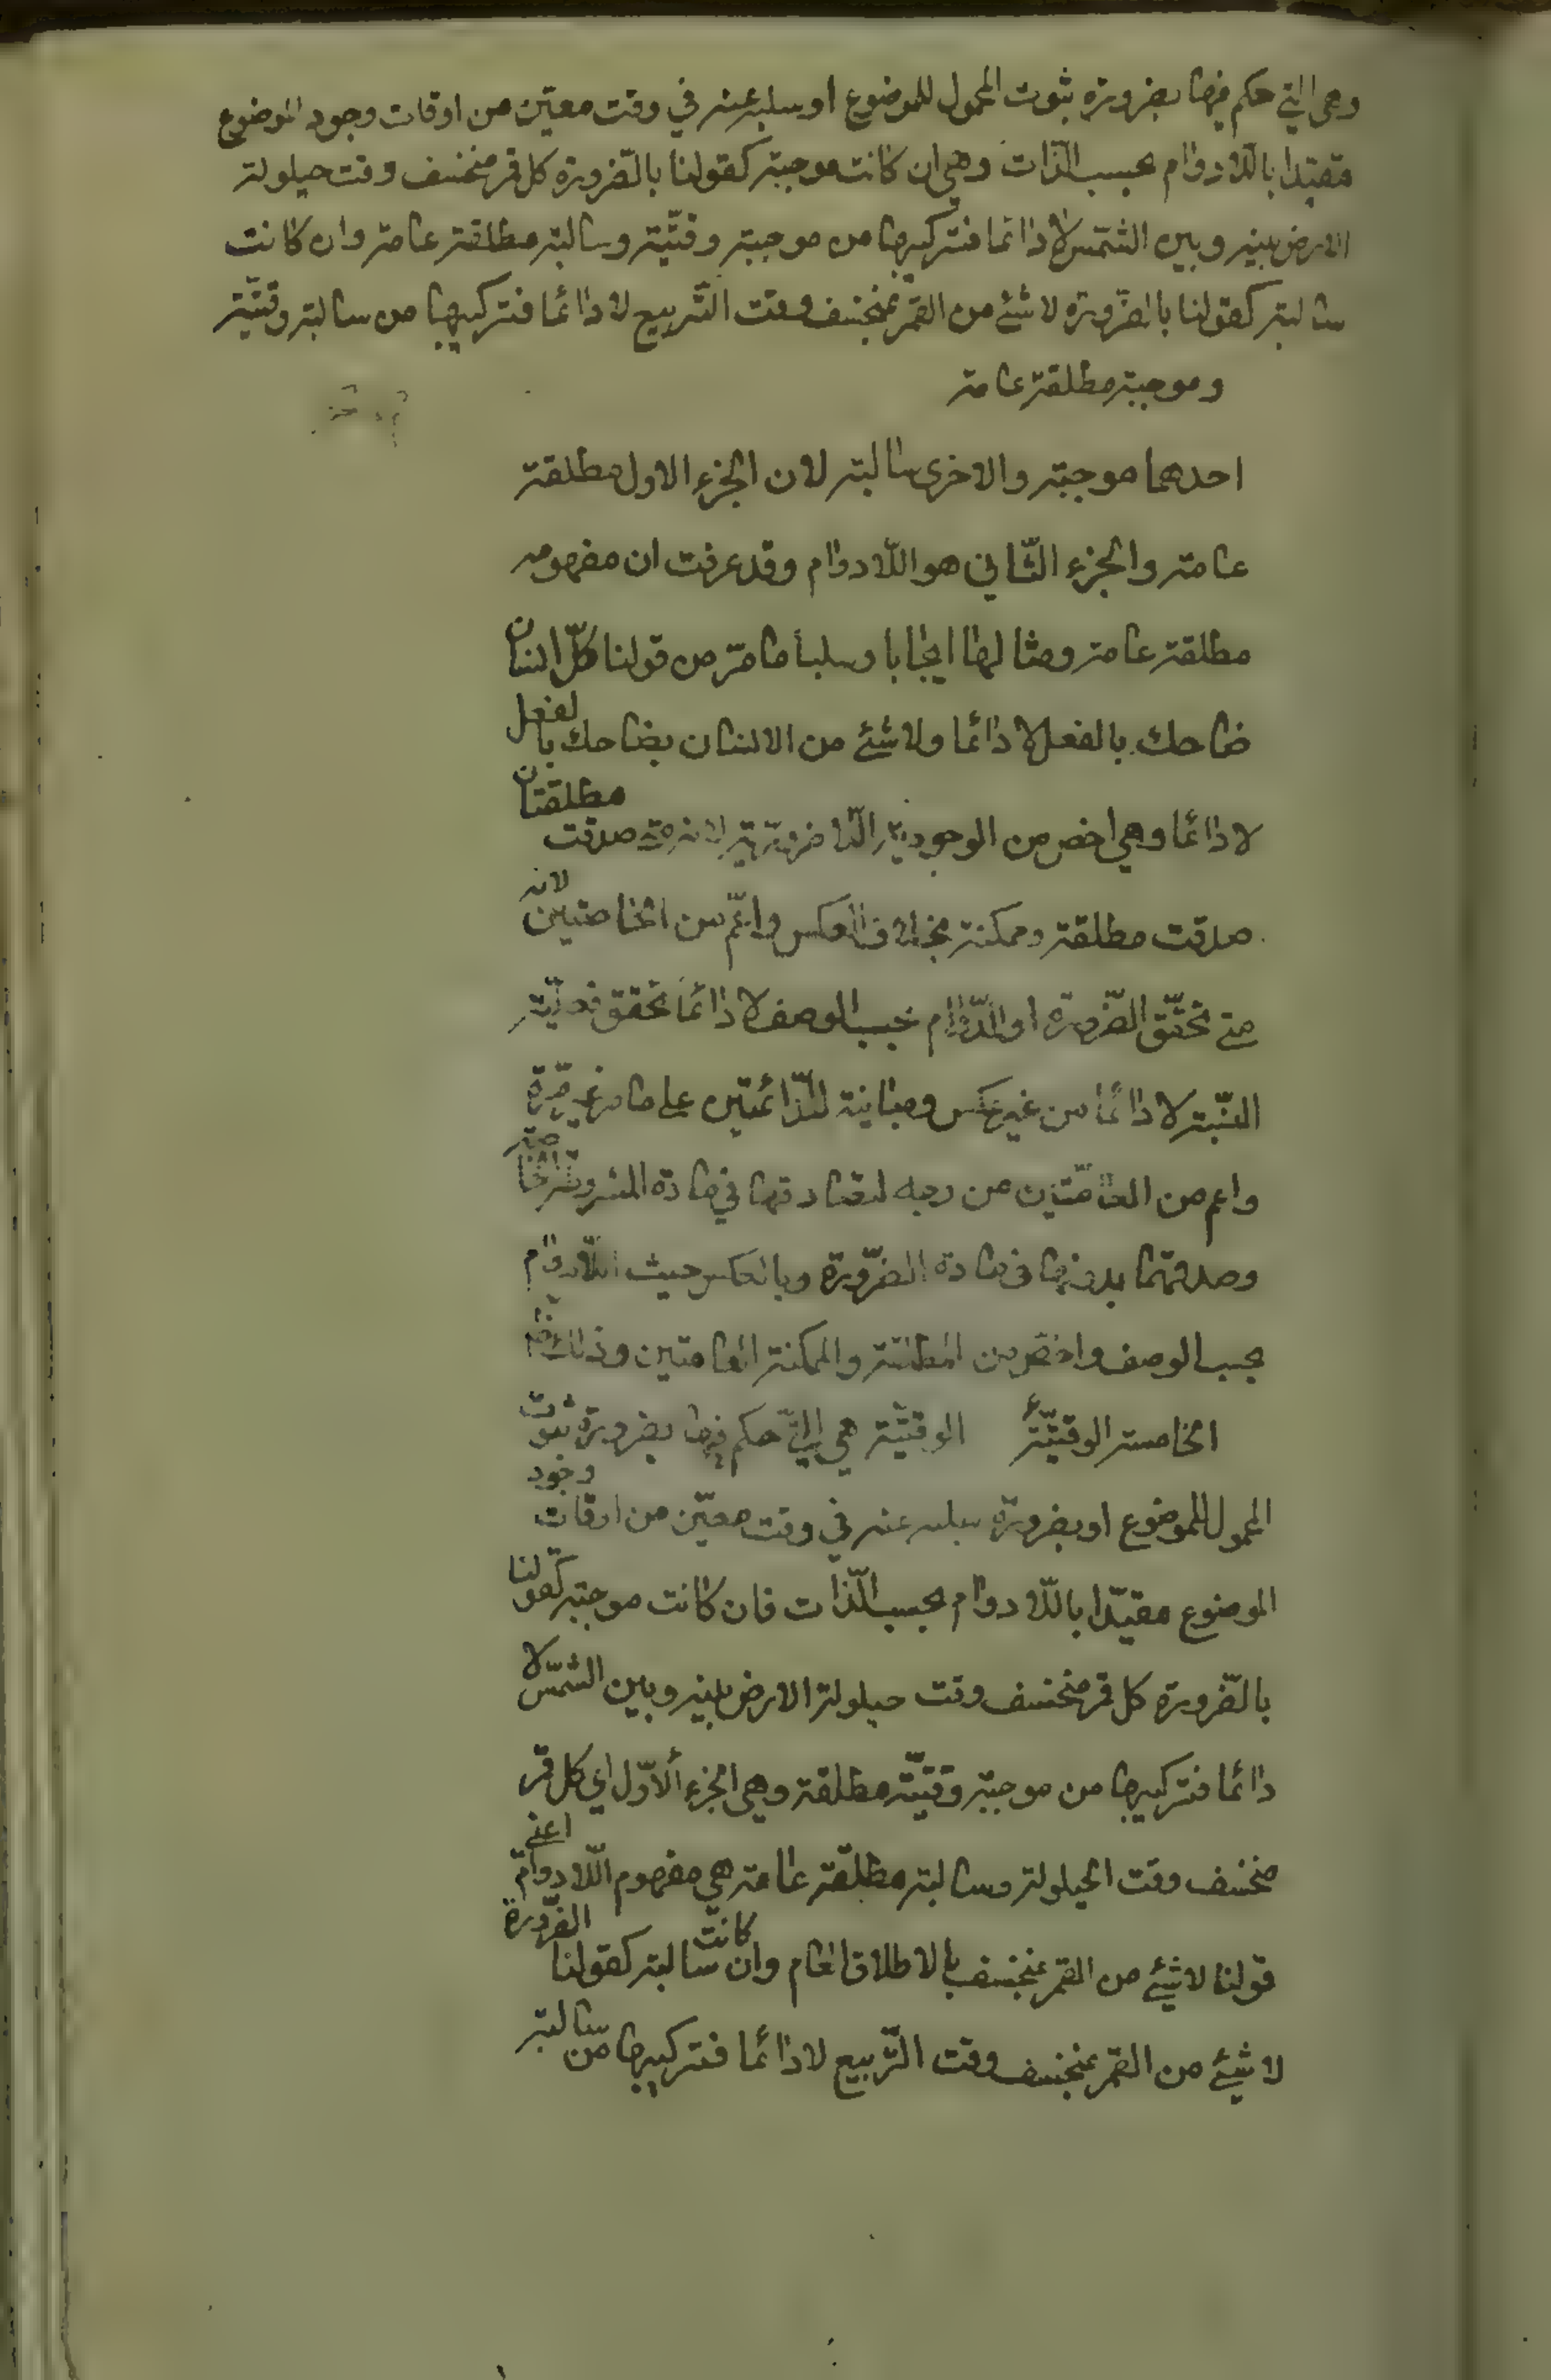 وهى التي حكم فيها بضرورة ثبوت المحمول للموضوع او سلبه عنه في وقت معيّن من اوقات وجود الموضوع
مقيّدا باللادوام بحسب الذات وهى ان كانت موجبة كقولنا بالضّرورة كل قمر منخسف وقت حيلولة
الارض بينه وبين الشمس لا دائما فتركيبها من موجبة وقتيّة وسالبة مطلقة عامة وان كانت
سالبة كقولنا بالضّرورة لا شئ من القمر بمنخسف وقت التّربيع لا دائما فتركيبها من سالبة وقتيّة
وموجبة مطلقة عامة
احدهما موجبة والاخرى سالبة لان الجزء الاول مطلقة
عامة والجزء الثّاني هو اللّادوام وقد عرفت ان مفهومه
مطلقة عامة ومثالها ايجابا وسلبا ما مرّ من قولنا كلّ انسان
ضاحك بالفعل لا دائما ولا شئ من الانسان بضاحك بالفعل
لا دائما وهي اخص من الوجودية اللّا ضروريّة لانه متى صدقت مطلقتان
صدقت مطلقة وممكنة بخلاف العكس واعمّ من الخاصتين لانه
متى تحقّق الضّرورة او الدّوام بحسب الوصف لا دائما تحقق فعليّة
النّسبة لا دائما من غير عكس ومباينة للدّائمتين على ما مر غير مرّة
واعم من العامّتين من وجه لتصادقها في مادة المشروطة الخاصة
وصدقهما بدونها في مادة الضّرورة وبالعكس حيث اللّادوام
بحسب الوصف واخصّ من المطلقة والممكنة العامتين وذلك ظ
الخامسة الوقتيّة الوقتيّة هي الّتي حكم فيها بضرورة ثبوت
المحمول للموضوع او بضرورة سلبه عنه في وقت معيّن من اوقات وجود
الموضوع مقيّدا باللّادوام بحسب الذّات فان كانت موجبة كقولنا
بالضّرورة كل قمر منخسف وقت حيلولة الارض بينه وبين الشّمس لا
دائما فتركيبها من موجبة وقتيّة مطلقة وهي الجزء الاوّل اي كل قمر
منخسف وقت الحيلولة وسالبة مطلقة عامة هي مفهوم اللّادوام اعني
قولنا لا شئ من القمر بمنخسف بالاطلاق العام وان كانت سالبة كقولنا الضّرورة
لا شئ من القمر بمنخسف وقت التّربيع لا دائما فتركيبها من سالبة